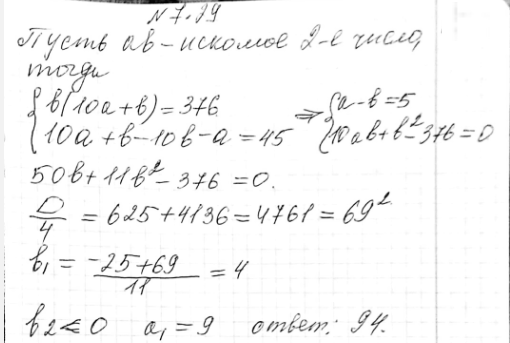 № 7.29
Пусть ab - искомое 2-е число,
тогда
{ b(10a+b)=376
{ 10a+b-10b-a=45
⇒ { a-b=5
{ 10ab+b²-376=0
50b+11b²-376=0.
D/4 = 625+4136=4761=69²
b₁ = (-25+69)/11 = 4
b₂<0 a₁=9 ответ: 94.